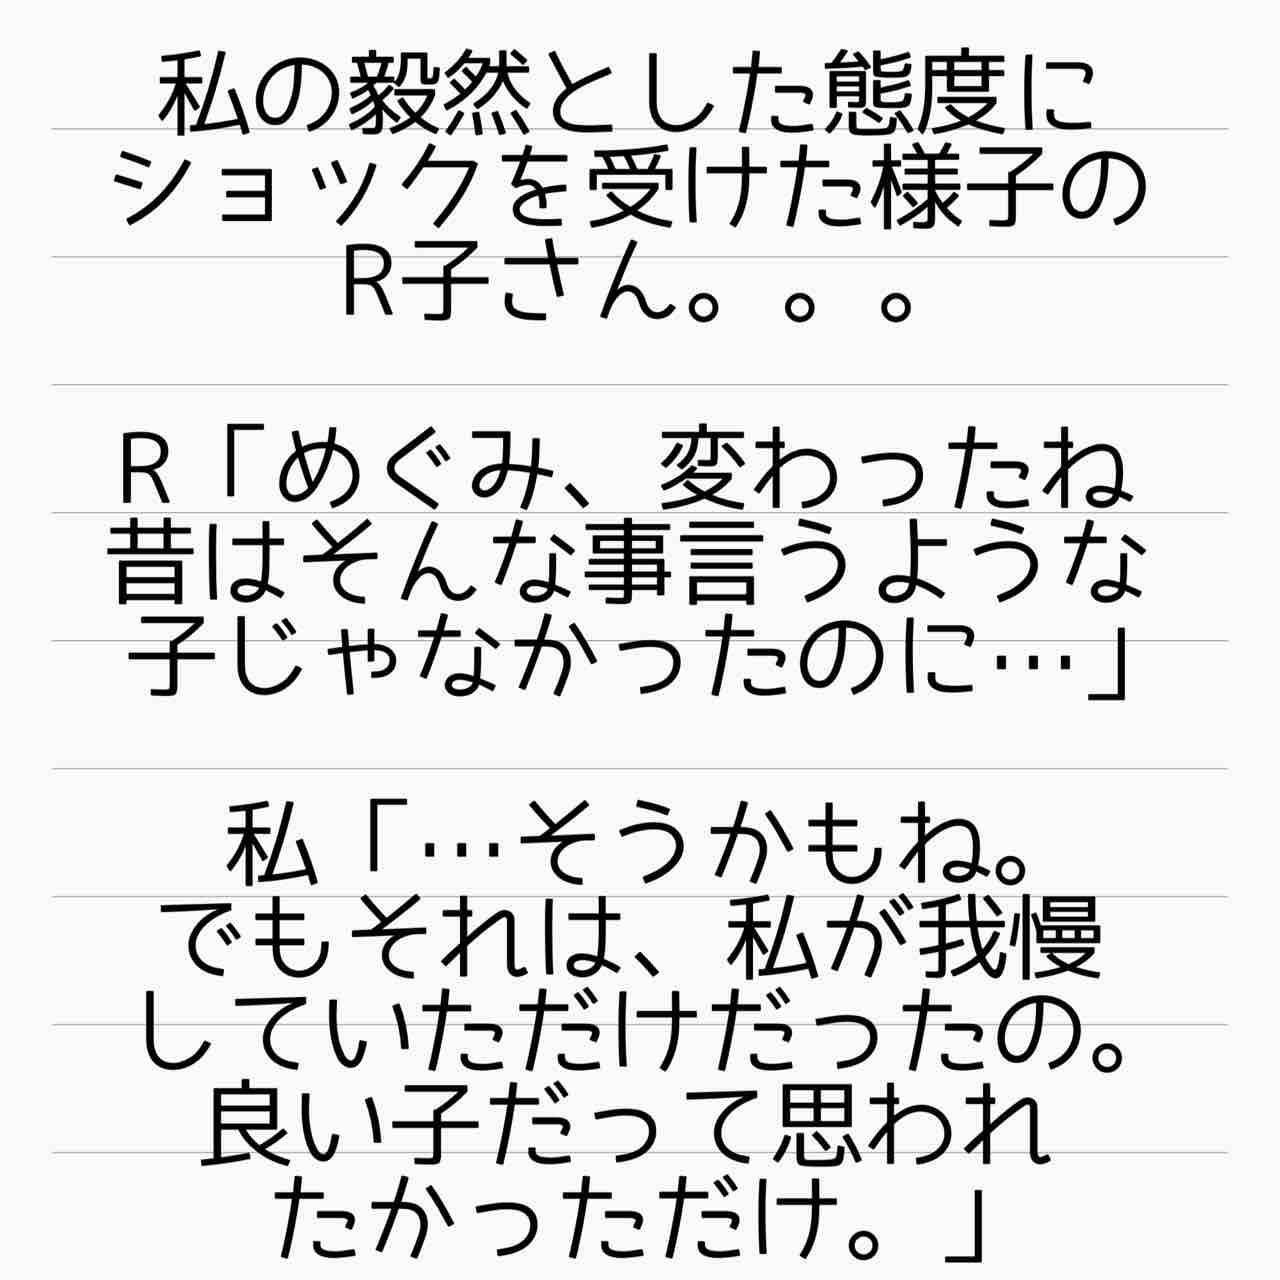 私の毅然とした態度に
ショックを受けた様子の
R子さん。。。
R「めぐみ、変わったね
昔はそんな事言うような
子じゃなかったのに…」
私「…そうかもね。
でもそれは、私が我慢
していただけだったの。
良い子だって思われ
たかっただけ。」